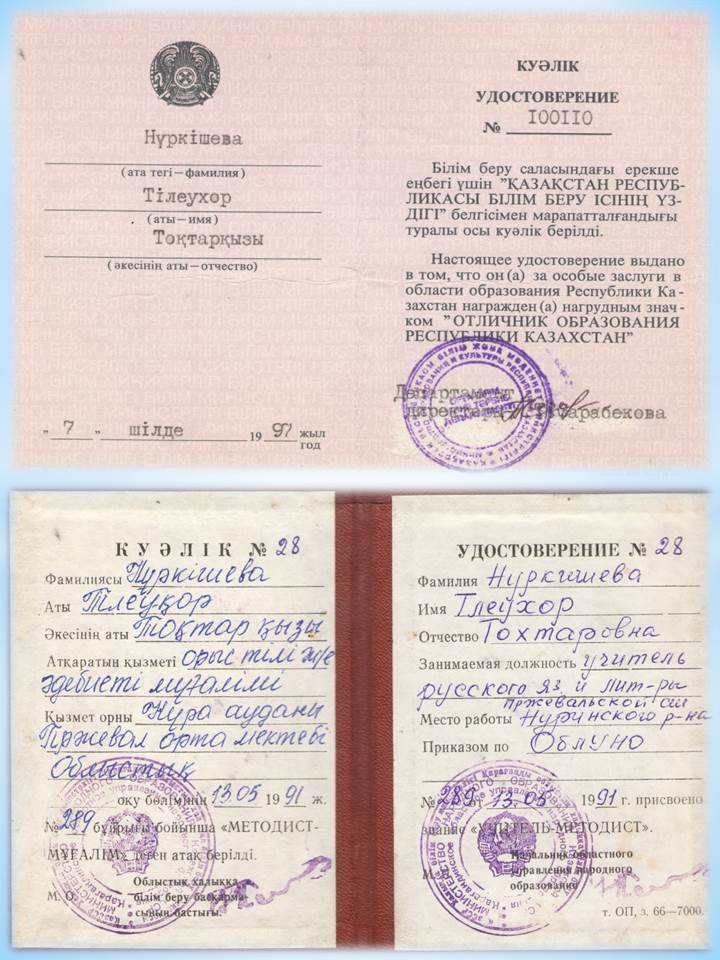 Нүркішева
(ата тегі—фамилия)
Тілеухор
(аты—имя)
Тоқтарқызы
(әкесінің аты—отчество)
" 7 " шілде 1997 жыл
год
КУӘЛІК
УДОСТОВЕРЕНИЕ
№ I00II0
Білім беру саласындағы ерекше
еңбегі үшін "ҚАЗАҚСТАН РЕСПУБ-
ЛИКАСЫ БІЛІМ БЕРУ ІСІНІҢ ҮЗ-
ДІГІ" белгісімен марапатталғандығы
туралы осы куәлік берілді.
Настоящее удостоверение выдано
в том, что он(а) за особые заслуги в
области образования Республики Ка-
захстан награжден(а) нагрудным знач-
ком "ОТЛИЧНИК ОБРАЗОВАНИЯ
РЕСПУБЛИКИ КАЗАХСТАН"
Департамент
директоры
КУӘЛІК № 28
Фамилиясы Нүркішева
Аты Тлеуқор
Әкесінің аты Тоқтар қызы
Атқаратын қызметі орыс тілі және
әдебиеті мұғалімі
Қызмет орны Нұра ауданы
Пржевал орта мектебі
Облыстық
оқу бөлімінің 13.05 1991 ж.
№ 289 бұйрығы бойынша «МЕТОДИСТ-
МҰҒАЛІМ» деген атақ берілді.
Облыстық халыққа
М. О. білім беру басқарма-
сының бастығы.
УДОСТОВЕРЕНИЕ № 28
Фамилия Нуркишева
Имя Тлеухор
Отчество Тохтаровна
Занимаемая должность учитель
русского яз. и лит-ры
Пржевальской сш
Место работы Нуринского р-на
Приказом по Облуно
№ 289 от 13.05 1991 г. присвоено
звание «УЧИТЕЛЬ-МЕТОДИСТ».
Начальник областного
М. П. управления народного
образования
т. ОП, з. 66—7000.